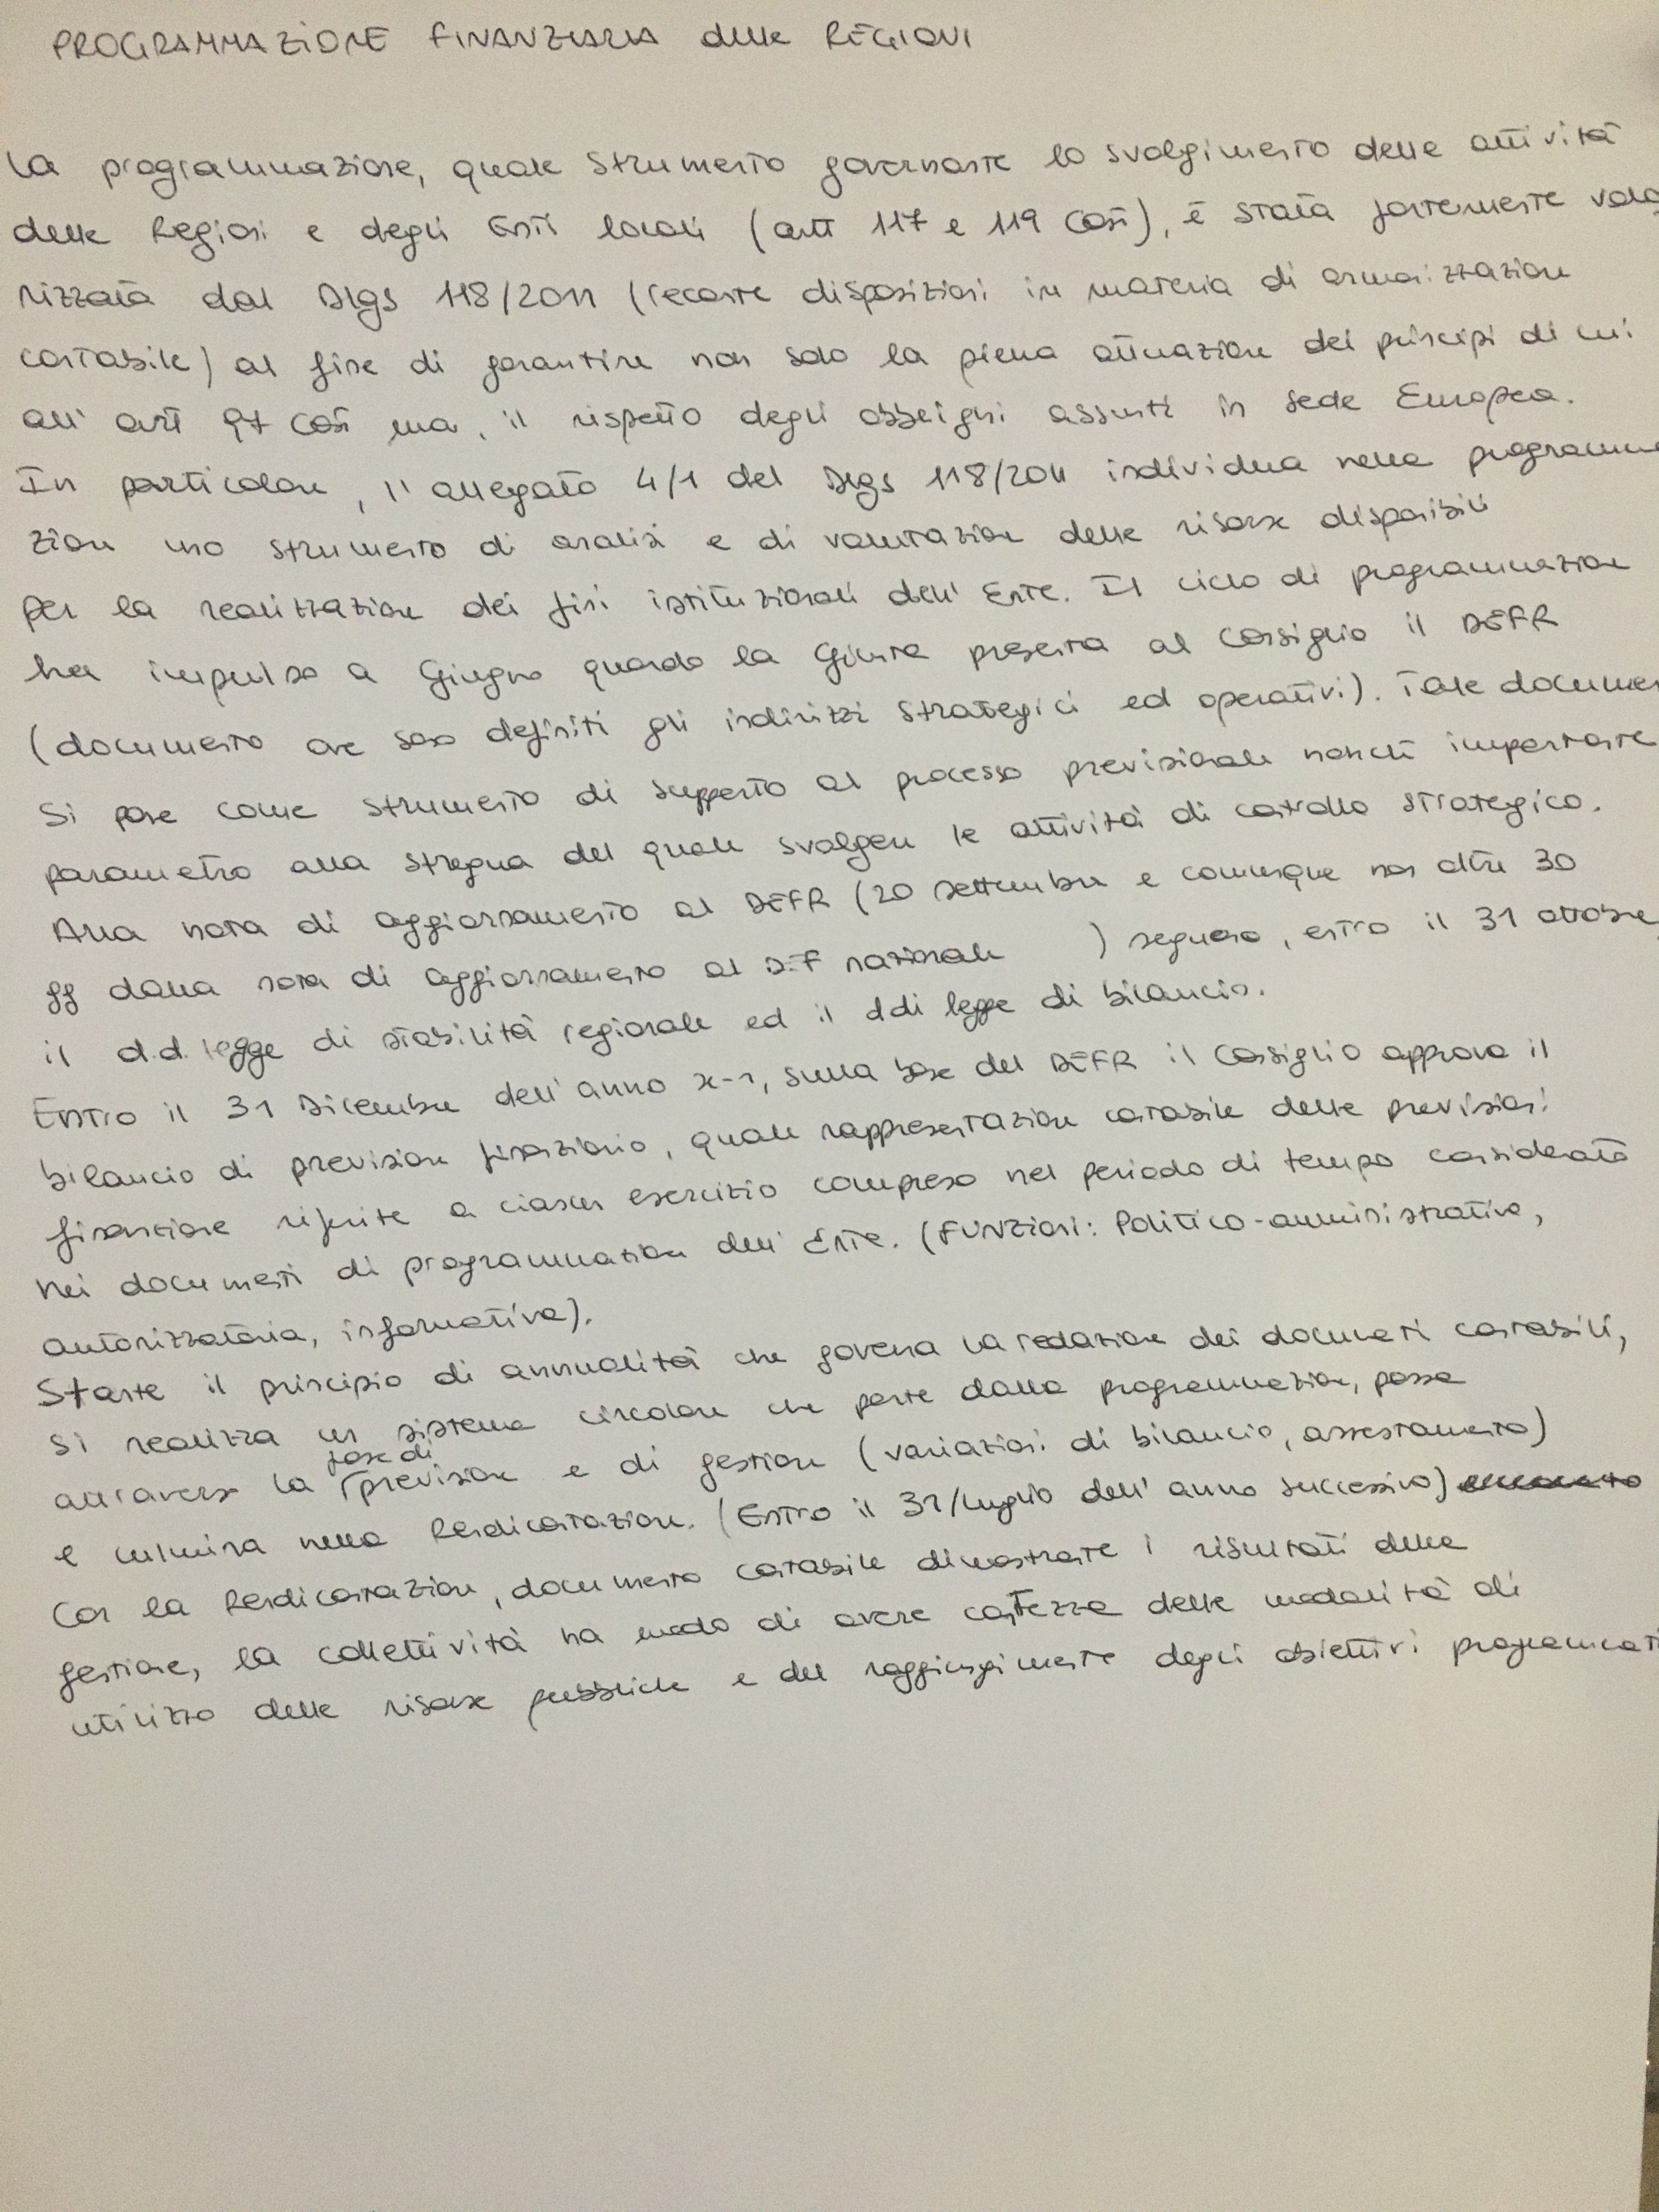 PROGRAMMAZIONE FINANZIARIA delle REGIONI
La programmazione, quale strumento governante lo svolgimento delle attività
delle Regioni e degli Enti locali (artt 117 e 119 Cost), è stata fortemente valo
rizzata dal Dlgs 118/2011 (recante disposizioni in materia di armonizzazione
contabile) al fine di garantire non solo la piena attuazione dei principi di cui
all' art 97 Cost ma, il rispetto degli obblighi assunti in sede Europea.
In particolare, l'allegato 4/1 del Dlgs 118/2011 individua nella programma
zione uno strumento di analisi e di valutazione delle risorse disponibili
per la realizzazione dei fini istituzionali dell' Ente. Il ciclo di programmazione
ha impulso a Giugno quando la Giunta presenta al Consiglio il DEFR
(documento ove sono definiti gli indirizzi strategici ed operativi). Tale documen
si pone come strumento di supporto al processo previsionale nonché importante
parametro alla stregua del quale svolgere le attività di controllo strategico.
Alla nota di aggiornamento al DEFR (20 settembre e comunque non oltre 30
gg dalla nota di aggiornamento al DEF nazionale ) seguono, entro il 31 ottobre,
il d.d. legge di stabilità regionale ed il ddi legge di bilancio.
Entro il 31 Dicembre dell'anno x-1, sulla base del DEFR il Consiglio approva il
bilancio di previsione finanziario, quale rappresentazione contabile delle previsioni
finanziare riferite a ciascun esercizio compreso nel periodo di tempo considerato
nei documenti di programmazione dell' Ente. (FUNZIONI: Politico-amministrativa,
autorizzatoria, informativa).
Stante il principio di annualità che governa la redazione dei documenti contabili,
si realizza un sistema circolare che parte dalla programmazione, passa
attraverso la fase di previsione e di gestione (variazioni di bilancio, assestamento)
e culmina nella Rendicontazione. (Entro il 31/luglio dell' anno successivo)
Con la Rendicontazione, documento contabile dimostrante i risultati della
gestione, la collettività ha modo di avere contezza delle modalità di
utilizzo delle risorse pubbliche e del raggiungimento degli obiettivi programmati